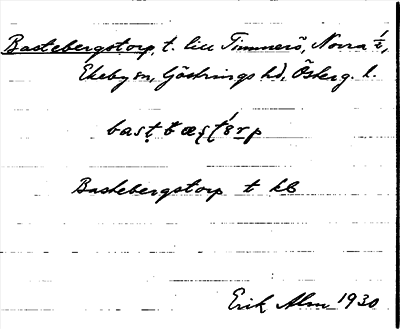 Bastebergstorp, t. lill Timmerö, Norra ½,
Ekeby sn, Göstrings hd, Österg. l.
Bastebergstorp t kb
Erik Alm 1930